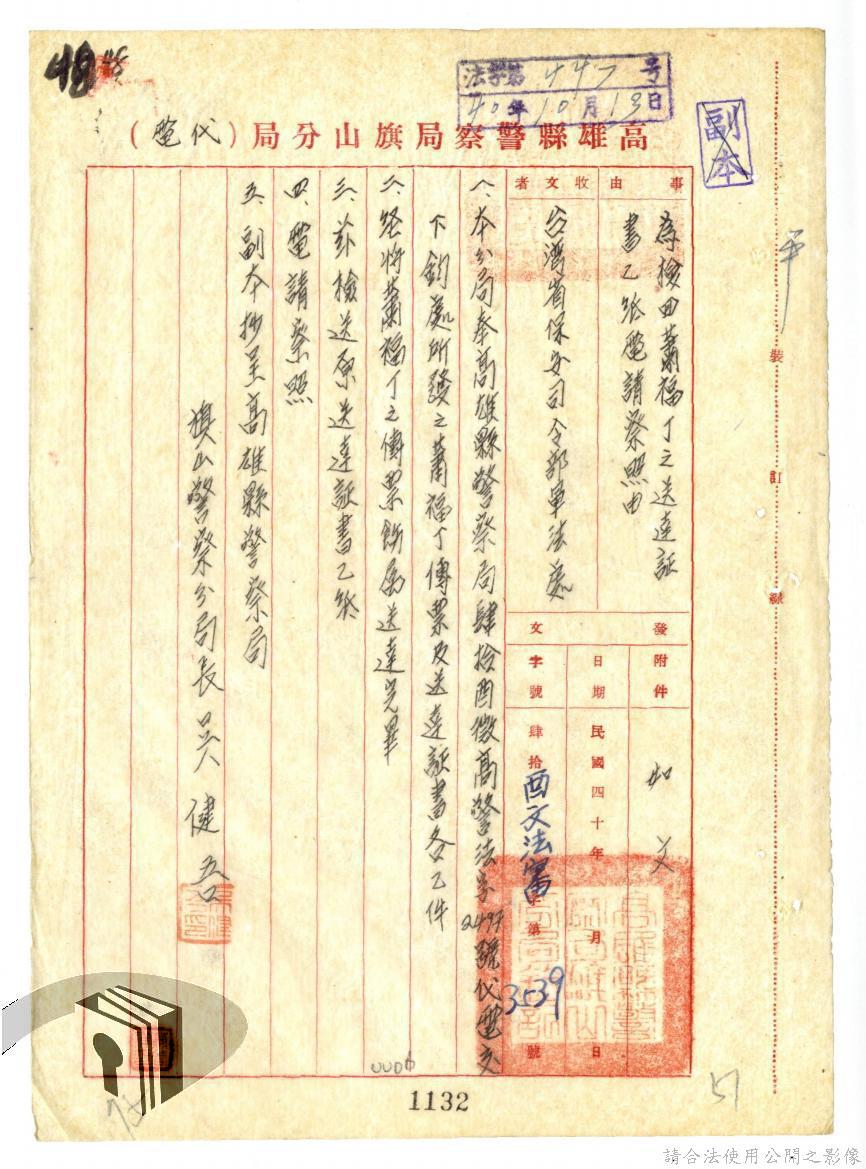 48
法字第447号
40年10月13日
副本
高雄縣警察局旗山分局(代電)
事由
為檢田蕭福丁之送達証
書乙紙電請察照由
收文者
台灣省保安司令部軍法處
發文
附件
如文
日期
民國四十年 月 日
字號
肆拾酉文法審字第3539號
一、本分局奉高雄縣警察局肆拾酉微高警法字2497號代電交
下鈞處所發之蕭福丁傳票及送達証書各乙件
二、經將蕭福丁之傳票飭屬送達完畢
三、茲檢送原送達証書乙紙
四、電請察照
五、副本抄呈高雄縣警察局
旗山警察分局長吳健吾
裝訂線
1132
51
請合法使用公開之影像